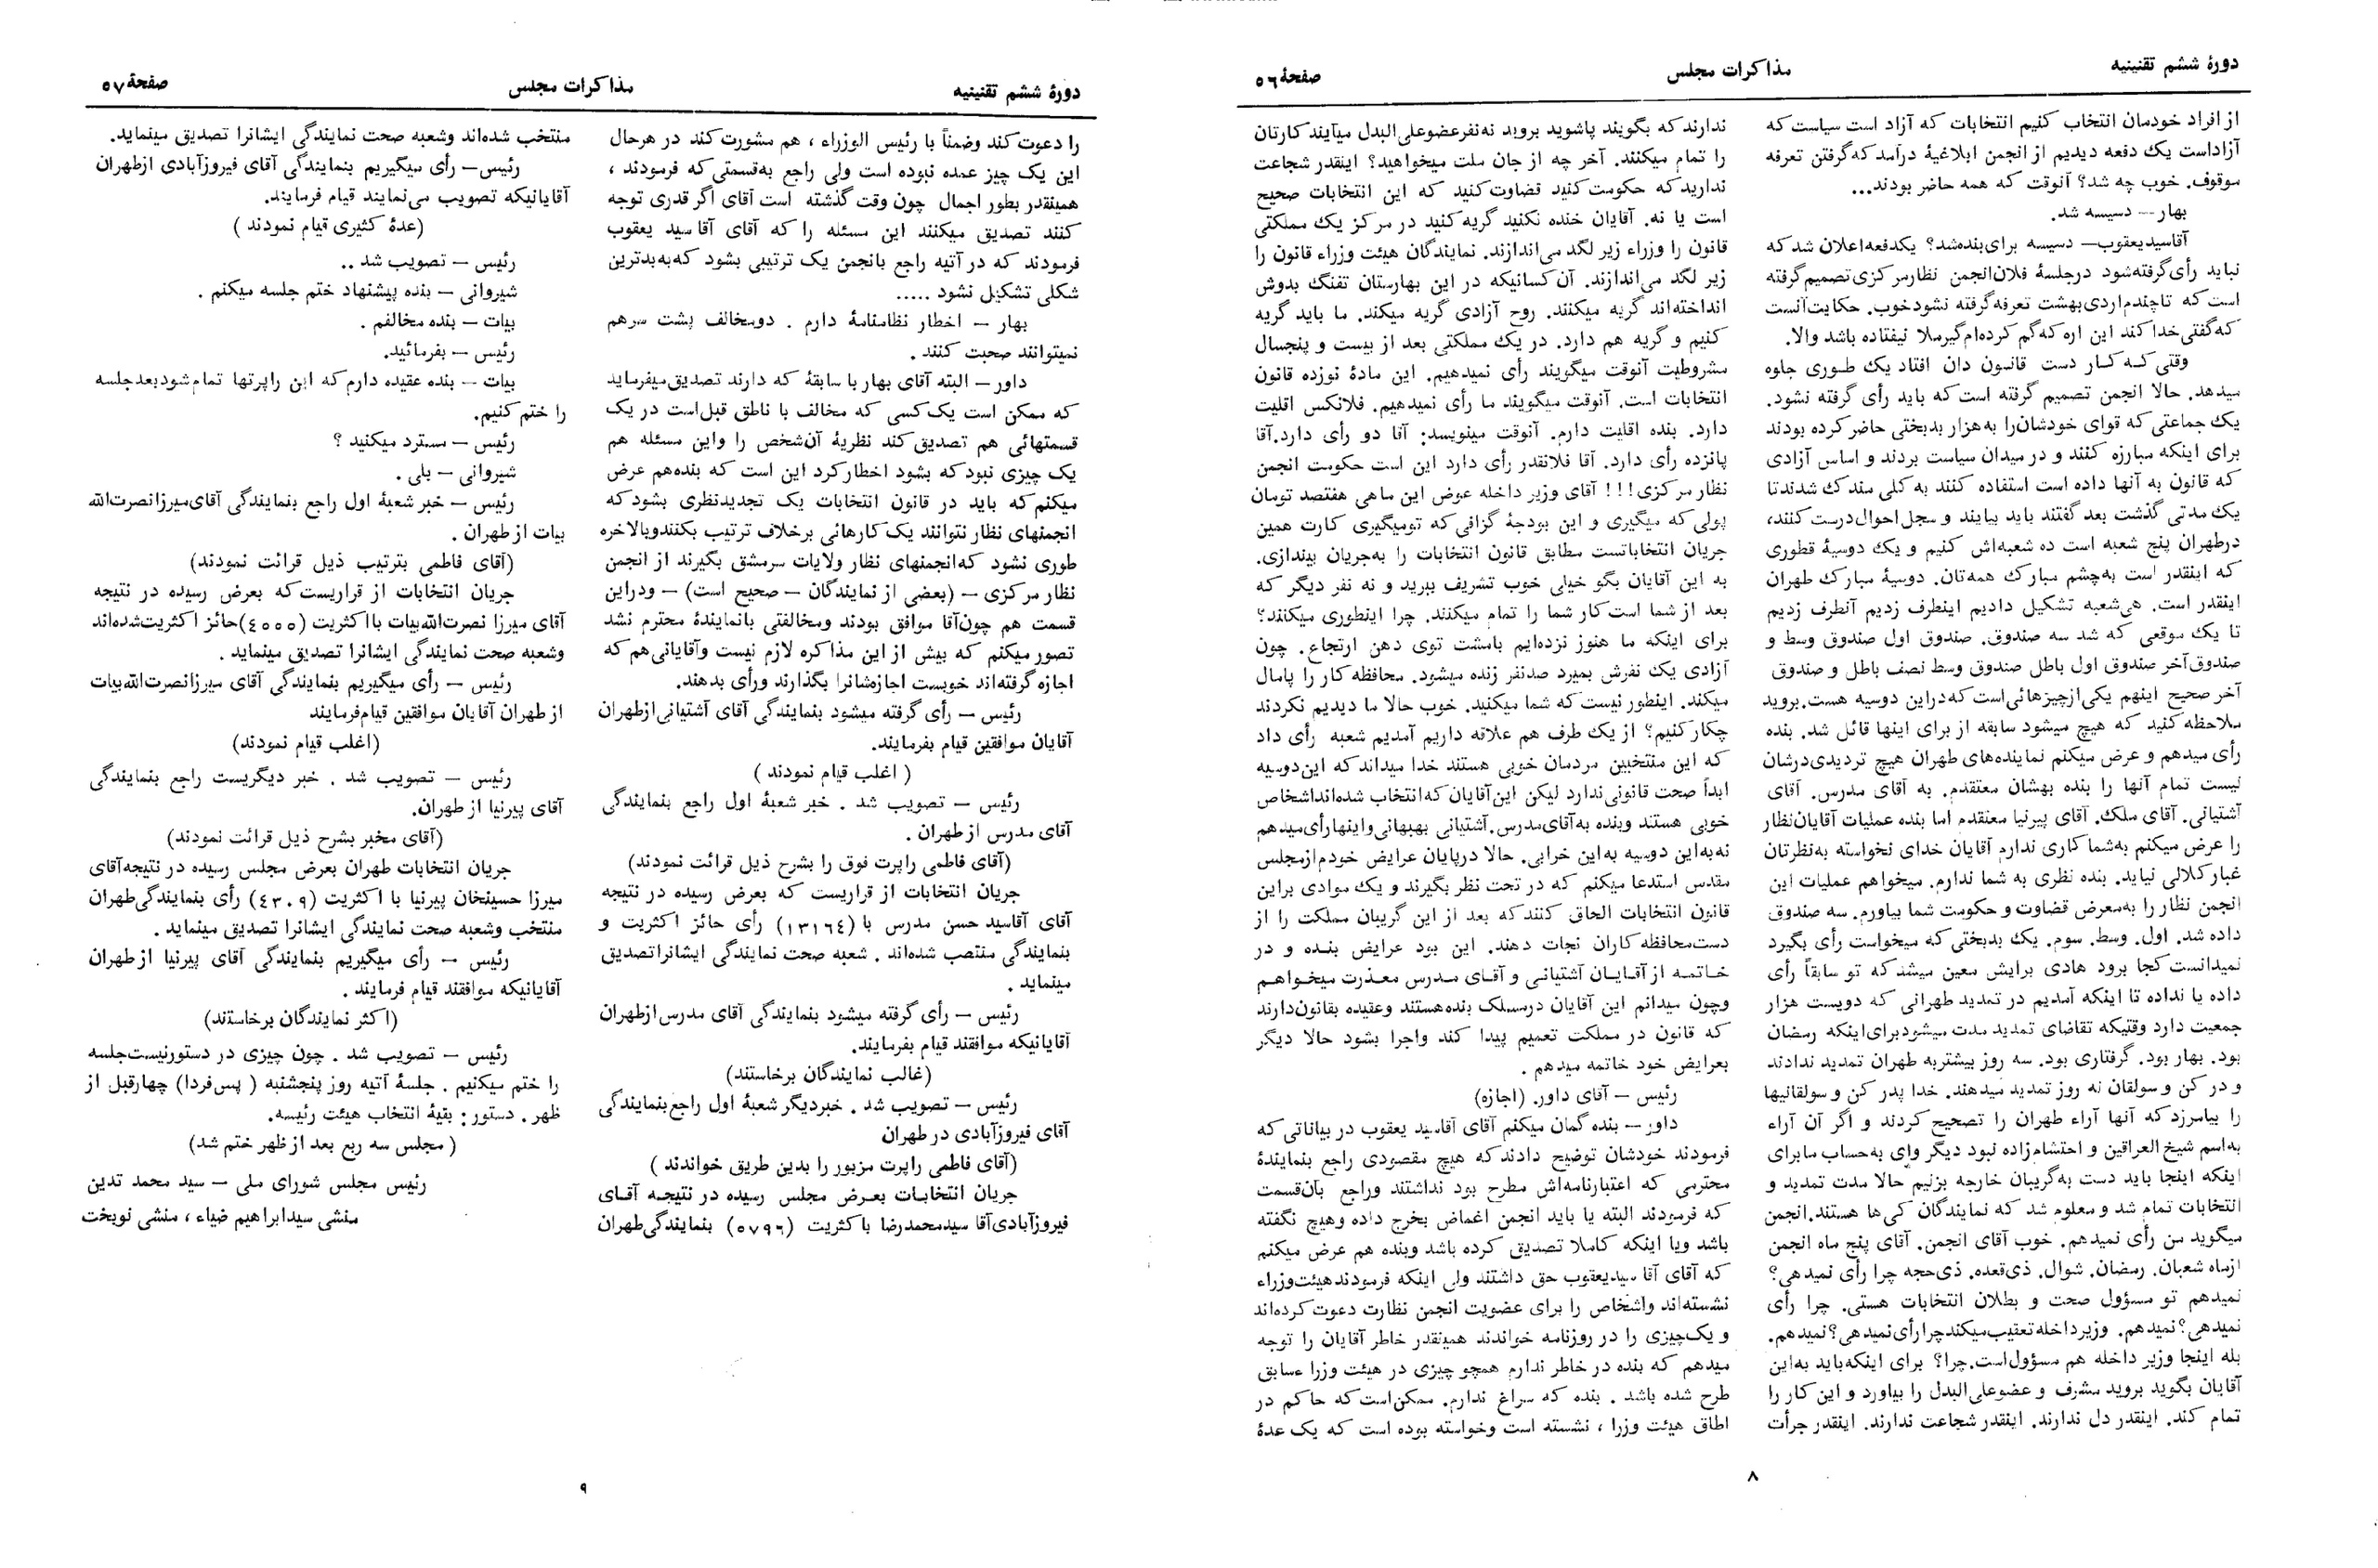 دورهٔ ششم تقنینیه
مذاکرات مجلس
صفحهٔ ۵۶
از افراد خودمان انتخاب کنیم انتخابات که آزاد است سیاست که
آزاداست یک دفعه دیدیم از انجمن ابلاغیهٔ درآمد که گرفتن تعرفه
موقوف. خوب چه شد؟ آنوقت که همه حاضر بودند...
بهار – دسیسه شد.
آقاسیدیعقوب – دسیسه برای بنده‌شد؟ یکدفعه‌اعلان شد که
نباید رأی گرفته‌شود درجلسهٔ فلان‌انجمن نظارمرکزی‌تصمیم‌گرفته
است که تاچندم‌اردی‌بهشت تعرفه‌گرفته نشودخوب. حکایت‌آنست
که‌گفتی‌خدا کند این اره که‌گم کرده‌ام گیرملا نیفتاده باشد والا.
وقتی که کار دست قانون دان افتاد یک طوری جلوه
میدهد. حالا انجمن تصمیم گرفته است که باید رأی گرفته نشود.
یک جماعتی که قوای خودشان‌را به هزار بدبختی حاضر کرده بودند
برای اینکه مبارزه کنند و در میدان سیاست بردند و اساس آزادی
که قانون به آنها داده است استفاده کنند به کلی مندک شدندتا
یک مدتی گذشت بعد گفتند باید بیایند و سجل احوال‌درست کنند،
درطهران پنج شعبه است ده شعبه‌اش کنیم و یک دوسیهٔ قطوری
که اینقدر است به‌چشم مبارک همه‌تان. دوسیهٔ مبارک طهران
اینقدر است. هی‌شعبه تشکیل دادیم اینطرف زدیم آنطرف زدیم
تا یک موقعی که شد سه صندوق. صندوق اول صندوق وسط و
صندوق‌آخر صندوق اول باطل صندوق وسط نصف باطل و صندوق
آخر صحیح اینهم یکی‌ازچیزهائی‌است که‌دراین دوسیه هست.بروید
ملاحظه کنید که هیچ میشود سابقه از برای اینها قائل شد. بنده
رأی میدهم و عرض میکنم نماینده‌های طهران هیچ تردیدی‌درشان
نیست تمام آنها را بنده بهشان معتقدم. به آقای مدرس. آقای
آشتیانی. آقای ملک. آقای پیرنیا معتقدم اما بنده عملیات آقایان‌نظار
را عرض میکنم به‌شما کاری ندارم آقایان خدای نخواسته به‌نظرتان
غبار کلالی نیاید. بنده نظری به شما ندارم. میخواهم عملیات این
انجمن نظار را به‌معرض قضاوت و حکومت شما بیاورم. سه صندوق
داده شد. اول. وسط. سوم. یک بدبختی که میخواست رأی بگیرد
نمیدانست کجا برود هادی برایش معین میشد که تو سابقاً رأی
داده یا نداده تا اینکه آمدیم در تمدید طهرانی که دویست هزار
جمعیت دارد وقتیکه تقاضای تمدید مدت میشودبرای‌اینکه رمضان
بود. بهار بود. گرفتاری بود. سه روز بیشتربه طهران تمدید ندادند
و در کن و سولقان نه روز تمدید میدهند. خدا پدر کن و سولقانیها
را بیامرزد که آنها آراء طهران را تصحیح کردند و اگر آن آراء
به‌اسم شیخ‌العراقین و احتشام‌زاده نبود دیگر وای به‌حساب مابرای
اینکه اینجا باید دست به‌گریبان خارجه بزنیم حالا مدت تمدید و
انتخابات تمام شد و معلوم شد که نمایندگان کی‌ها هستند.انجمن
میگوید من رأی نمیدهم. خوب آقای انجمن. آقای پنج ماه انجمن
ازماه شعبان. رمضان. شوال. ذی‌قعده. ذی‌حجه چرا رأی نمیدهی؟
نمیدهم تو مسؤول صحت و بطلان انتخابات هستی. چرا رأی
نمیدهی؟ نمیدهم. وزیرداخله تعقیب‌میکند چرا رأی نمیدهی؟ نمیدهم.
بله اینجا وزیر داخله هم مسؤول‌است.چرا؟ برای اینکه‌باید به‌این
آقایان بگوید بروید مشرف و عضوعلی‌البدل را بیاورد و این کار را
تمام کند. اینقدر دل ندارند. اینقدر شجاعت ندارند. اینقدر جرأت
ندارند که بگویند پاشوید بروید نه‌نفرعضوعلی‌البدل میآیند کارتان
را تمام میکنند. آخر چه از جان ملت میخواهید؟ اینقدر شجاعت
ندارید که حکومت کنید قضاوت کنید که این انتخابات صحیح
است یا نه. آقایان خنده نکنید گریه کنید در مرکز یک مملکتی
قانون را وزراء زیر لگد می‌اندازند. نمایندگان هیئت وزراء قانون را
زیر لگد می‌اندازند. آن کسانیکه در این بهارستان تفنگ بدوش
انداخته‌اند گریه میکنند. روح آزادی گریه میکند. ما باید گریه
کنیم و گریه هم دارد. در یک مملکتی بعد از بیست و پنجسال
مشروطیت آنوقت میگویند رأی نمیدهیم. این مادهٔ نوزده قانون
انتخابات است. آنوقت میگویند ما رأی نمیدهیم. فلانکس اقلیت
دارد. بنده اقلیت دارم. آنوقت مینویسد: آقا دو رأی دارد.آقا
پانزده رأی دارد. آقا فلانقدر رأی دارد این است حکومت انجمن
نظار مرکزی!!! آقای وزیر داخله عوض این ماهی هفتصد تومان
پولی که میگیری و این بودجهٔ گزافی که تومیگیری کارت همین
جریان انتخاباتست مطابق قانون انتخابات را به‌جریان بیندازی.
به این آقایان بگو خیلی خوب تشریف ببرید و نه نفر دیگر که
بعد از شما است کار شما را تمام میکنند. چرا اینطوری میکنند؟
برای اینکه ما هنوز نزده‌ایم بامشت توی دهن ارتجاع. چون
آزادی یک نفرش بمیرد صدنفر زنده میشود. محافظه کار را پامال
میکند. اینطور نیست که شما میکنید. خوب حالا ما دیدیم نکردند
چکار کنیم؟ از یک طرف هم علاقه داریم آمدیم شعبه رأی داد
که این منتخبین مردمان خوبی هستند خدا میداند که این‌دوسیه
ابداً صحت قانونی‌ندارد لیکن این‌آقایان که‌انتخاب شده‌انداشخاص
خوبی هستند وبنده به‌آقای‌مدرس.آشتیانی بهبهانی‌واینهارأی‌میدهم
نه‌به‌این دوسیه به‌این خرابی. حالا درپایان عرایض خودم‌ازمجلس
مقدس استدعا میکنم که در تحت نظر بگیرند و یک موادی براین
قانون انتخابات الحاق کنند که بعد از این گریبان مملکت را از
دست‌محافظه کاران نجات دهند. این بود عرایض بنده و در
خاتمه از آقایان آشتیانی و آقای مدرس معذرت میخواهم
وچون میدانم این آقایان درمسلک بنده‌هستند وعقیده بقانون‌دارند
که قانون در مملکت تعمیم پیدا کند واجرا بشود حالا دیگر
بعرایض خود خاتمه میدهم .
رئیس – آقای داور. (اجازه)
داور – بنده گمان میکنم آقای آقاسید یعقوب در بیاناتی که
فرمودند خودشان توضیح دادند که هیچ مقصودی راجع بنمایندهٔ
محترمی که اعتبارنامه‌اش مطرح بود نداشتند وراجع بآن‌قسمت
که فرمودند البته یا باید انجمن اغماض بخرج داده وهیچ نگفته
باشد ویا اینکه کاملا تصدیق کرده باشد وبنده هم عرض میکنم
که آقای آقا سیدیعقوب حق داشتند ولی اینکه فرمودند هیئت‌وزراء
نشسته‌اند واشخاص را برای عضویت انجمن نظارت دعوت کرده‌اند
و یک‌چیزی را در روزنامه خواندند همینقدر خاطر آقایان را توجه
میدهم که بنده در خاطر ندارم همچو چیزی در هیئت وزرا عسابق
طرح شده باشد . بنده که سراغ ندارم. ممکن‌است که حاکم در
اطاق هیئت وزرا ، نشسته است وخواسته بوده است که یک عدهٔ
۸
دورهٔ ششم تقنینیه
مذاکرات مجلس
صفحهٔ ۵۷
را دعوت کند وضمناً با رئیس الوزراء ، هم مشورت کند در هرحال
این یک چیز عمده نبوده است ولی راجع به‌قسمتی که فرمودند ،
همینقدر بطور اجمال چون وقت گذشته است آقای اگر قدری توجه
کنند تصدیق میکنند این مسئله را که آقای آقا سید یعقوب
فرمودند که در آتیه راجع بانجمن یک ترتیبی بشود که‌به‌بدترین
شکلی تشکیل نشود .....
بهار – اخطار نظامنامهٔ دارم . دومخالف پشت سرهم
نمیتوانند صحبت کنند .
داور – البته آقای بهار با سابقهٔ که دارند تصدیق‌میفرماید
که ممکن است یک‌کسی که مخالف با ناطق قبل‌است در یک
قسمتهائی هم تصدیق کند نظریهٔ آن‌شخص را واین مسئله هم
یک چیزی نبود که بشود اخطار کرد این است که بنده‌هم عرض
میکنم که باید در قانون انتخابات یک تجدیدنظری بشود که
انجمنهای نظار نتوانند یک کارهائی برخلاف ترتیب بکنندوبالاخره
طوری نشود که‌انجمنهای نظار ولایات سرمشق بگیرند از انجمن
نظار مرکزی – (بعضی از نمایندگان – صحیح است) – ودراین
قسمت هم چون‌آقا موافق بودند ومخالفتی بانمایندهٔ محترم نشد
تصور میکنم که بیش از این مذاکره لازم نیست وآقایانی‌هم که
اجازه گرفته‌اند خوبست اجازه‌شانرا بگذارند ورأی بدهند.
رئیس – رأی گرفته میشود بنمایندگی آقای آشتیانی‌ازطهران
آقایان موافقین قیام بفرمایند.
( اغلب قیام نمودند )
رئیس – تصویب شد . خبر شعبهٔ اول راجع بنمایندگی
آقای مدرس از طهران .
(آقای فاطمی راپرت فوق را بشرح ذیل قرائت نمودند)
جریان انتخابات از قراریست که بعرض رسیده در نتیجه
آقای آقاسید حسن مدرس با (۱۳۱۶٤) رأی حائز اکثریت و
بنمایندگی منتصب شده‌اند . شعبه صحت نمایندگی ایشانراتصدیق
مینماید .
رئیس – رأی گرفته میشود بنمایندگی آقای مدرس ازطهران
آقایانیکه موافقند قیام بفرمایند.
(غالب نمایندگان برخاستند)
رئیس – تصویب شد . خبردیگر شعبهٔ اول راجع‌بنمایندگی
آقای فیروزآبادی در طهران
(آقای فاطمی راپرت مزبور را بدین طریق خواندند )
جریان انتخابات بعرض مجلس رسیده در نتیجه آقای
فیروزآبادی‌آقا سیدمحمدرضا با کثریت (۵۷۹۶) بنمایندگی‌طهران
منتخب شده‌اند وشعبه صحت نمایندگی ایشانرا تصدیق مینماید.
رئیس – رأی میگیریم بنمایندگی آقای فیروزآبادی ازطهران
آقایانیکه تصویب می‌نمایند قیام فرمایند.
(عدهٔ کثیری قیام نمودند )
رئیس – تصویب شد ..
شیروانی – بنده پیشنهاد ختم جلسه میکنم .
بیات – بنده مخالفم .
رئیس – بفرمائید.
بیات – بنده عقیده دارم که این راپرتها تمام‌شودبعدجلسه
را ختم کنیم.
رئیس – مسترد میکنید ؟
شیروانی – بلی .
رئیس – خبر شعبهٔ اول راجع بنمایندگی آقای‌میرزانصرت‌الله
بیات از طهران .
(آقای فاطمی بترتیب ذیل قرائت نمودند)
جریان انتخابات از قراریست که بعرض رسیده در نتیجه
آقای میرزا نصرت‌الله‌بیات با اکثریت (٤۵۵۵)حائز اکثریت‌شده‌اند
وشعبه صحت نمایندگی ایشانرا تصدیق مینماید .
رئیس – رأی میگیریم بنمایندگی آقای میرزانصرت‌الله‌بیات
از طهران آقایان موافقین قیام‌فرمایند
(اغلب قیام نمودند)
رئیس – تصویب شد . خبر دیگریست راجع بنمایندگی
آقای پیرنیا از طهران.
(آقای مخبر بشرح ذیل قرائت نمودند)
جریان انتخابات طهران بعرض مجلس رسیده در نتیجه‌آقای
میرزا حسینخان پیرنیا با اکثریت (٤٣٠٩) رأی بنمایندگی‌طهران
منتخب وشعبه صحت نمایندگی ایشانرا تصدیق مینماید .
رئیس – رأی میگیریم بنمایندگی آقای پیرنیا ازطهران
آقایانیکه موافقند قیام فرمایند .
(اکثر نمایندگان برخاستند)
رئیس – تصویب شد . چون چیزی در دستورنیست‌جلسه
را ختم میکنیم . جلسهٔ آتیه روز پنجشنبه ( پس‌فردا) چهارقبل از
ظهر . دستور : بقیهٔ انتخاب هیئت رئیسه.
( مجلس سه ربع بعد از ظهر ختم شد)
رئیس مجلس شورای ملی – سید محمد تدین
منشی سیدابراهیم ضیاء ، منشی نوبخت
۹